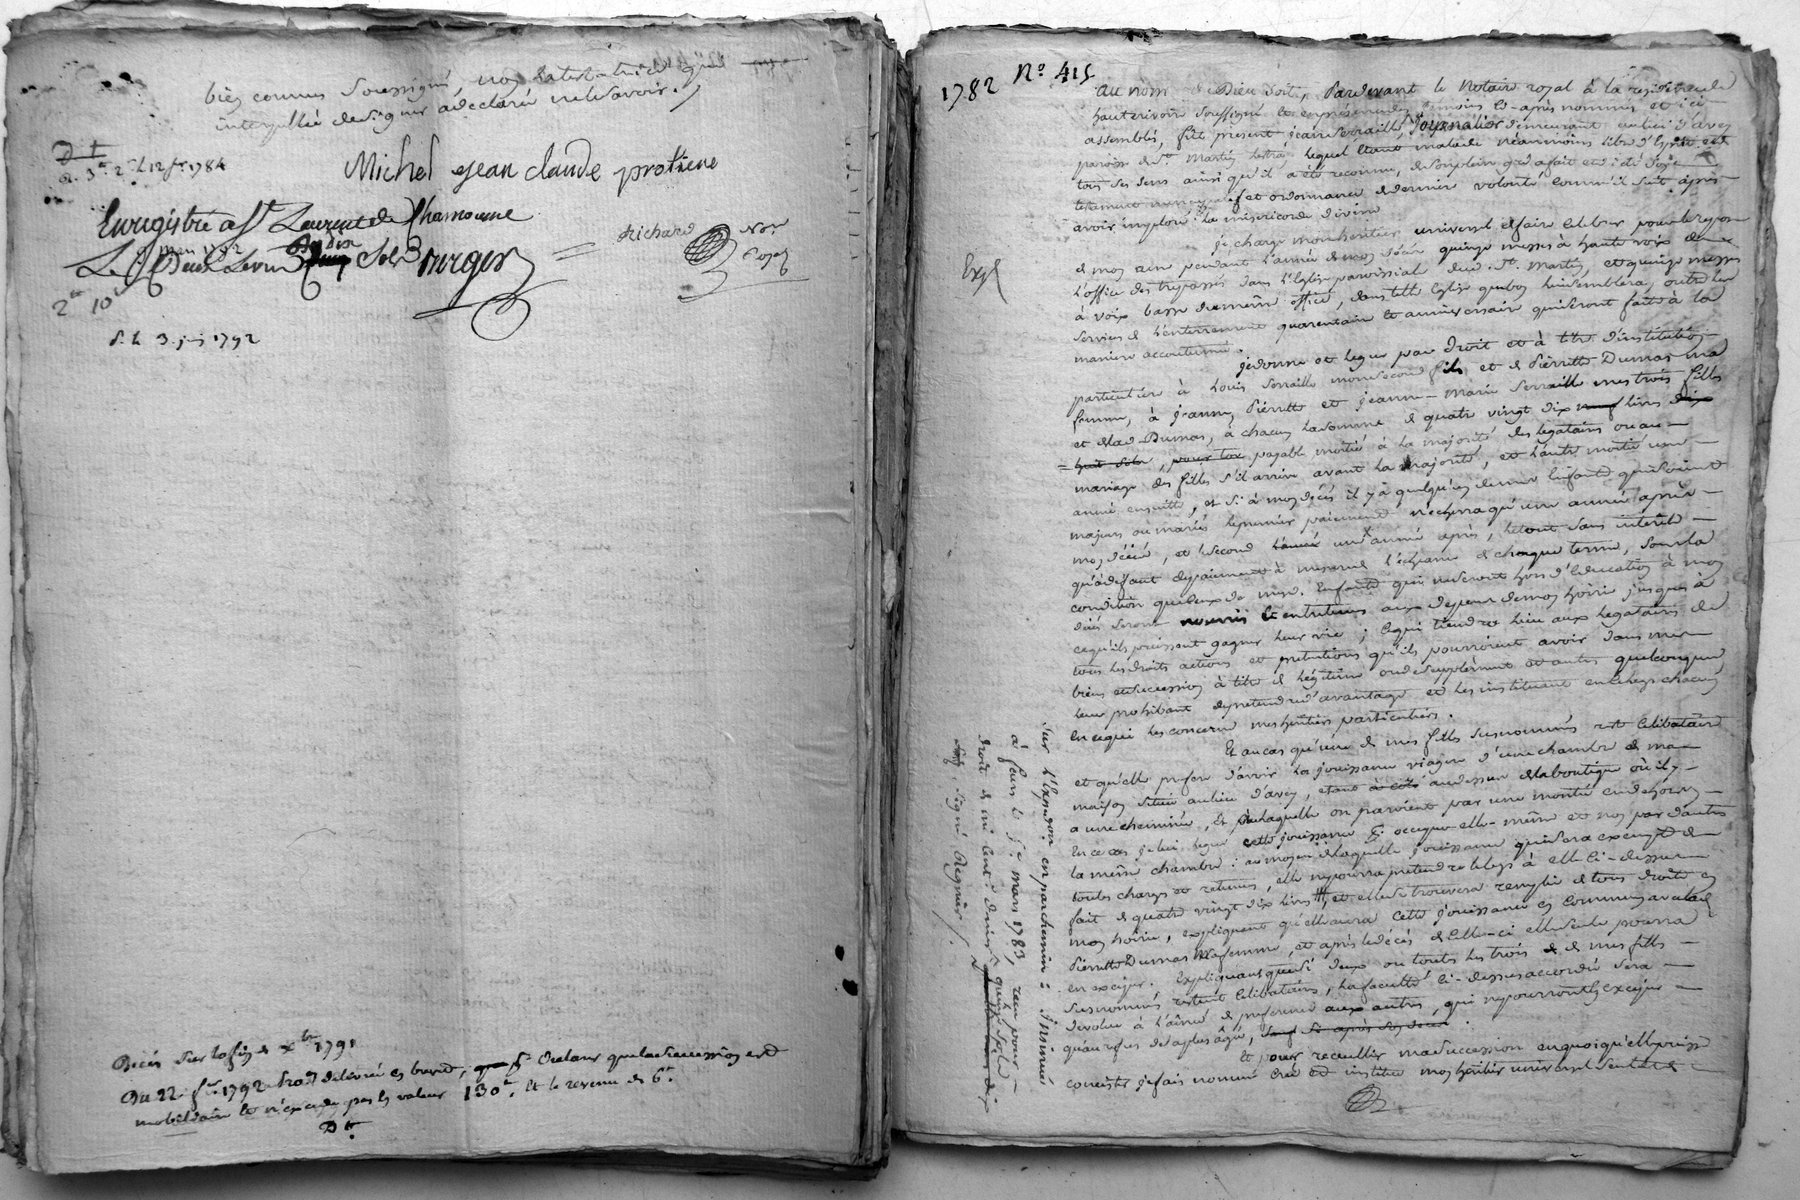 bien connus soussigné, non la testatrice qui
interpellée de signer a declaré ne le savoir.
Michel jean claude protiere
Enregistré a St Laurent de Chamousset
Richard Nore Royal
Le mars 1792
Reçu Sols Burger
2# 10s
3 juin 1792
Décés sur la fin de xbre 1791
Du 22 1792 délivré en brevet, que la succession est
mobiliaire et n'excede pas la valeur 130#. et le revenu de 6#.
1782 No. 415
au nom de Dieu soit, Pardevant le Notaire royal à la residence de
hauterivoire soussigné et en présence des témoins ci-après nommés et ici
assemblés, fût présent jean Serraille, Journalier demeurant au lieu d'avey
paroisse de St. Martin lestra lequel étant malade néanmoins libre d'esprit et
tous ses sens ainsi qu'il a été reconnu, de son plein gré a fait et dicté son
testament nuncupatif et ordonnance de derniere volonté comme il suit après
avoir imploré la misericorde divine
Exp
je charge mon heritier universel de faire celebrer pour le repos
de mon ame pendant l'année de mon décés quinze messes à haute voix de
l'office des trepassés dans l'Eglise paroissial dud. St. Martin, et quinze messes
à voix basse du même office, dans telle Eglise que bon lui semblera, outre les
services d'enterrement quarantaine et anniversaire qui seront faits à la
maniere accoutumée.
je donne et legue par droit et à titre d'institution
particuliere à Louis Serraille mon second fils et de Pierrette Dumas ma
femme, à jeanne, Pierrette et jeanne-marie Serraille mes trois filles
et de lad. Dumas, à chacun la somme de quatre vingt dix livres
payable moitié à la majorité des legataires ou au
mariage des filles s'il arrive avant la majorité, et l'autre moitié une
année ensuitte, et si à mon décés il y a quelqu'un de mes Enfants qui soient
majeurs ou mariés le premier paiement n'echerra qu'une année après
mon décés, et le second une année après, le tout sans interêts
qu'à defaut de paiement à mesure l'echeance de chaque terme, sous la
condition que ceux de mesd. Enfants qui ne seront hors d'education à mon
décés seront nourris et entretenus aux depens de mon hoirie jusques à
ce qu'ils puissent gagner leur vie; ce qui tiendra lieu aux legataires de
tous les droits actions et pretentions qu'ils pourroient avoir dans mes
biens et succession à titre de legitime ou de supplément et autres quelconques
leur prohibant de pretendre d'avantage et les instituant en ce legs chacun
en ce qui les concerne mes heritiers particuliers.
Et au cas qu'une de mes filles susnommés reste celibataire
et qu'elle prefere d'avoir la jouissance viagere d'une chambre de ma
maison située au lieu d'avey, étant au dessus de la boutique où il y
a une cheminée, et à laquelle on parvient par une montée en dehors,
en ce cas je lui legue cette jouissance occuper elle-même et non par d'autres
la même chambre: au moyen de laquelle jouissance qui sera exempte de
toutes charges et retenues, elle ne pourra pretendre le legs à elle ci-dessus
fait de quatre vingt dix livres, et elle se trouvera remplie de tous droits en
mon hoirie, expliquant qu'elle aura cette jouissance en commun avec lad.
Pierrette Dumas ma femme, et après le décés de celle-ci elle seule pourra
en exciper. Expliquant que si deux ou toutes les trois de mes filles
susnommés restent celibataires, la faculté ci-dessus accordée sera
devolue à l'ainée de preference aux autres, qui ne pourront l'exciper
qu'au refus de la plus âgée,
Et pour recueillir ma succession en quoi qu'elle puisse
consister je fais nommé créé et institué mon heritier universel seul et de
Sur l'Expedition en parchemin: Insinué
à feurs le 5e mars 1783, reçu pour
droit de mi cent: deniers quinze sols
Signé Regnier.